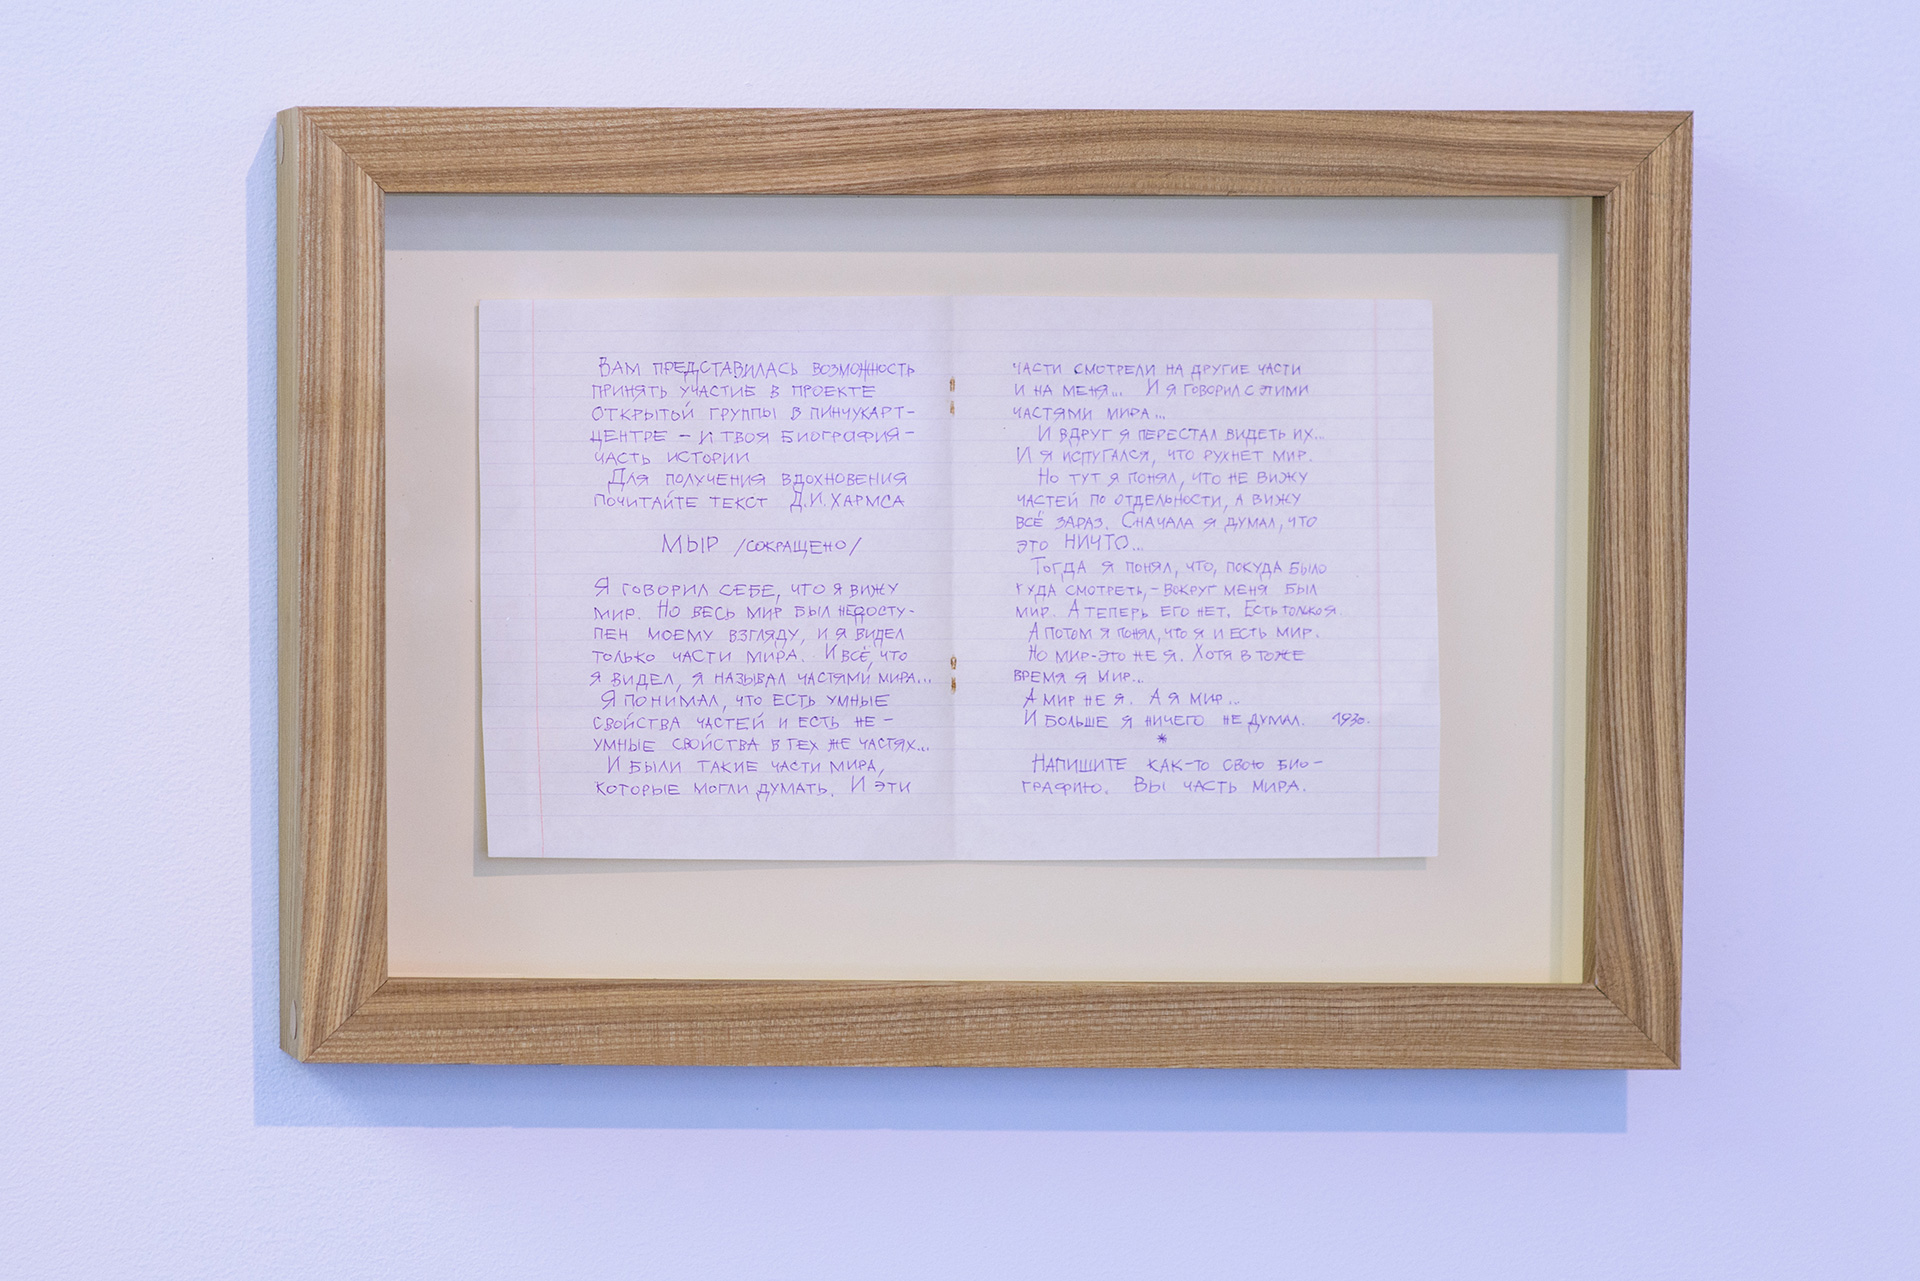 Вам представилась возможность
принять участие в проекте
открытой группы в Пинчукарт-
центре – и твоя биография –
часть истории
Для получения вдохновения
почитайте текст Д.И. Хармса
МЫР /сокращено/
Я говорил себе, что я вижу
мир. Но весь мир был недосту-
пен моему взгляду, и я видел
только части мира. И всё, что
я видел, я называл частями мира...
Я понимал, что есть умные
свойства частей и есть не-
умные свойства в тех же частях...
И были такие части мира,
которые могли думать. И эти
части смотрели на другие части
и на меня... И я говорил с этими
частями мира...
И вдруг я перестал видеть их...
И я испугался, что рухнет мир.
Но тут я понял, что не вижу
частей по отдельности, а вижу
всё зараз. Сначала я думал, что
это НИЧТО...
Тогда я понял, что, покуда было
куда смотреть, – вокруг меня был
мир. А теперь его нет. Есть только я.
А потом я понял, что я и есть мир.
Но мир – это не я. Хотя в тоже
время я мир...
А мир не я. А я мир...
И больше я ничего не думал. 1930.
*
Напишите как-то свою био-
графию. Вы часть мира.